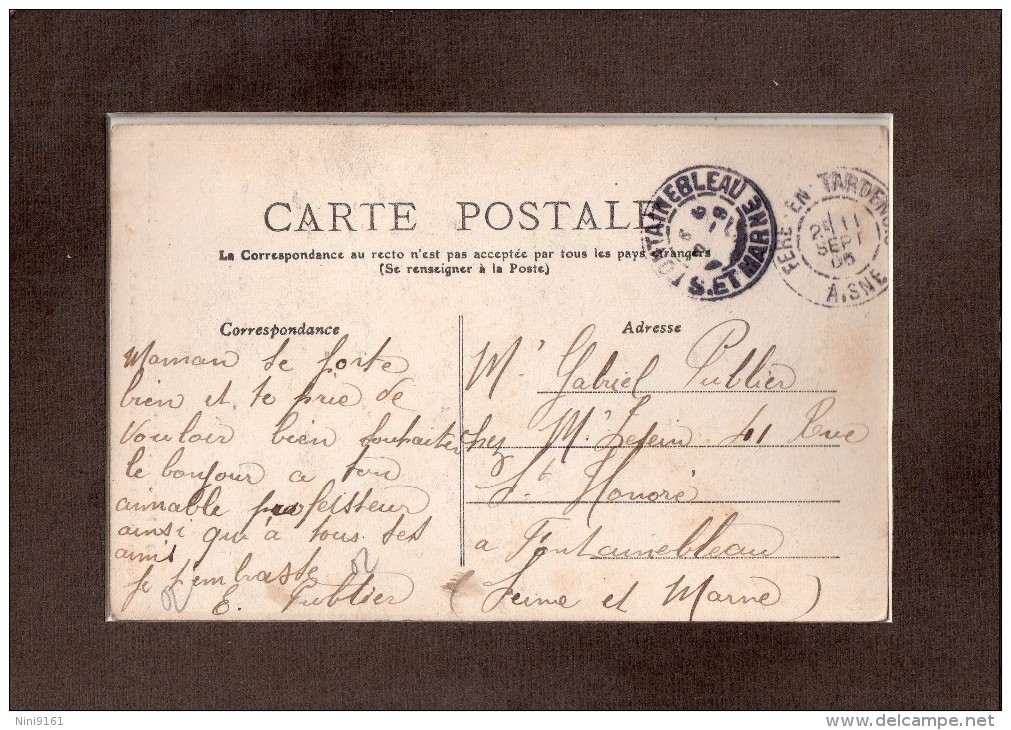 CARTE POSTALE
La Correspondance au recto n'est pas acceptée par tous les pays étrangers
(Se renseigner à la Poste)
FONTAINEBLEAU
S. ET MARNE
FERE-EN-TARDENOIS
SEPT
AISNE
Correspondance
Maman se porte
bien et te prie de
vouloir bien souhaiter
le bonjour a ton
aimable professeur
ainsi qu'à tous tes
amis
Je t'embrasse
E. Publier
Adresse
Mr Gabriel Publier
chez Mr 41 Rue
St Honoré
a Fontainebleau
(Seine et Marne)
Nini9161
www.delcampe.net